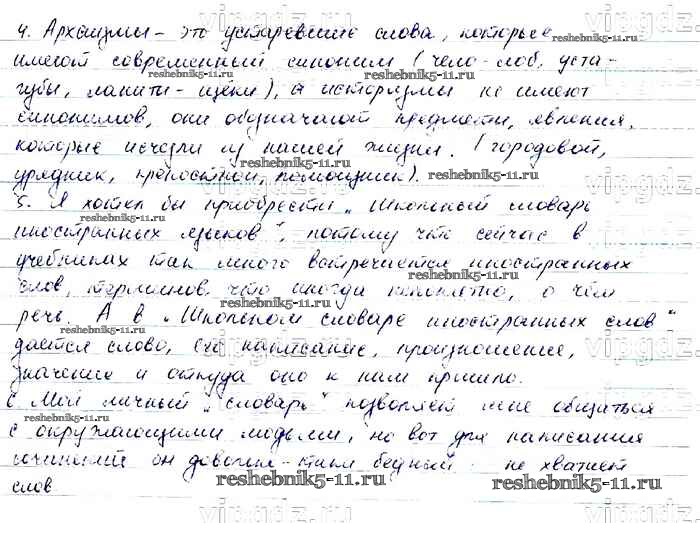 4. Архаизмы - это устаревшие слова, которые
имеют современный синоним (чело-лоб, уста-
губы, ланиты - щёки), а историзмы не имеют
синонимов, они обозначают предметы, явления,
которые исчезли из нашей жизни. (городовой,
урядник, крепостной, помощник).
5. Я хотел бы приобрести „Школьный словарь
иностранных языков", потому что сейчас в
учебниках так много встречается иностранных
слов, терминов, что иногда непонятно, о чём
речь. А в „Школьном словаре иностранных слов"
даётся слово, его написание, произношение,
значение и откуда оно к нам пришло.
6 Мой личный „словарь" позволяет мне общаться
с окружающими людьми, но вот для написания
сочинений он довольно-таки бедный: не хватает
слов
vipgdz.ru
reshebnik5-11.ru